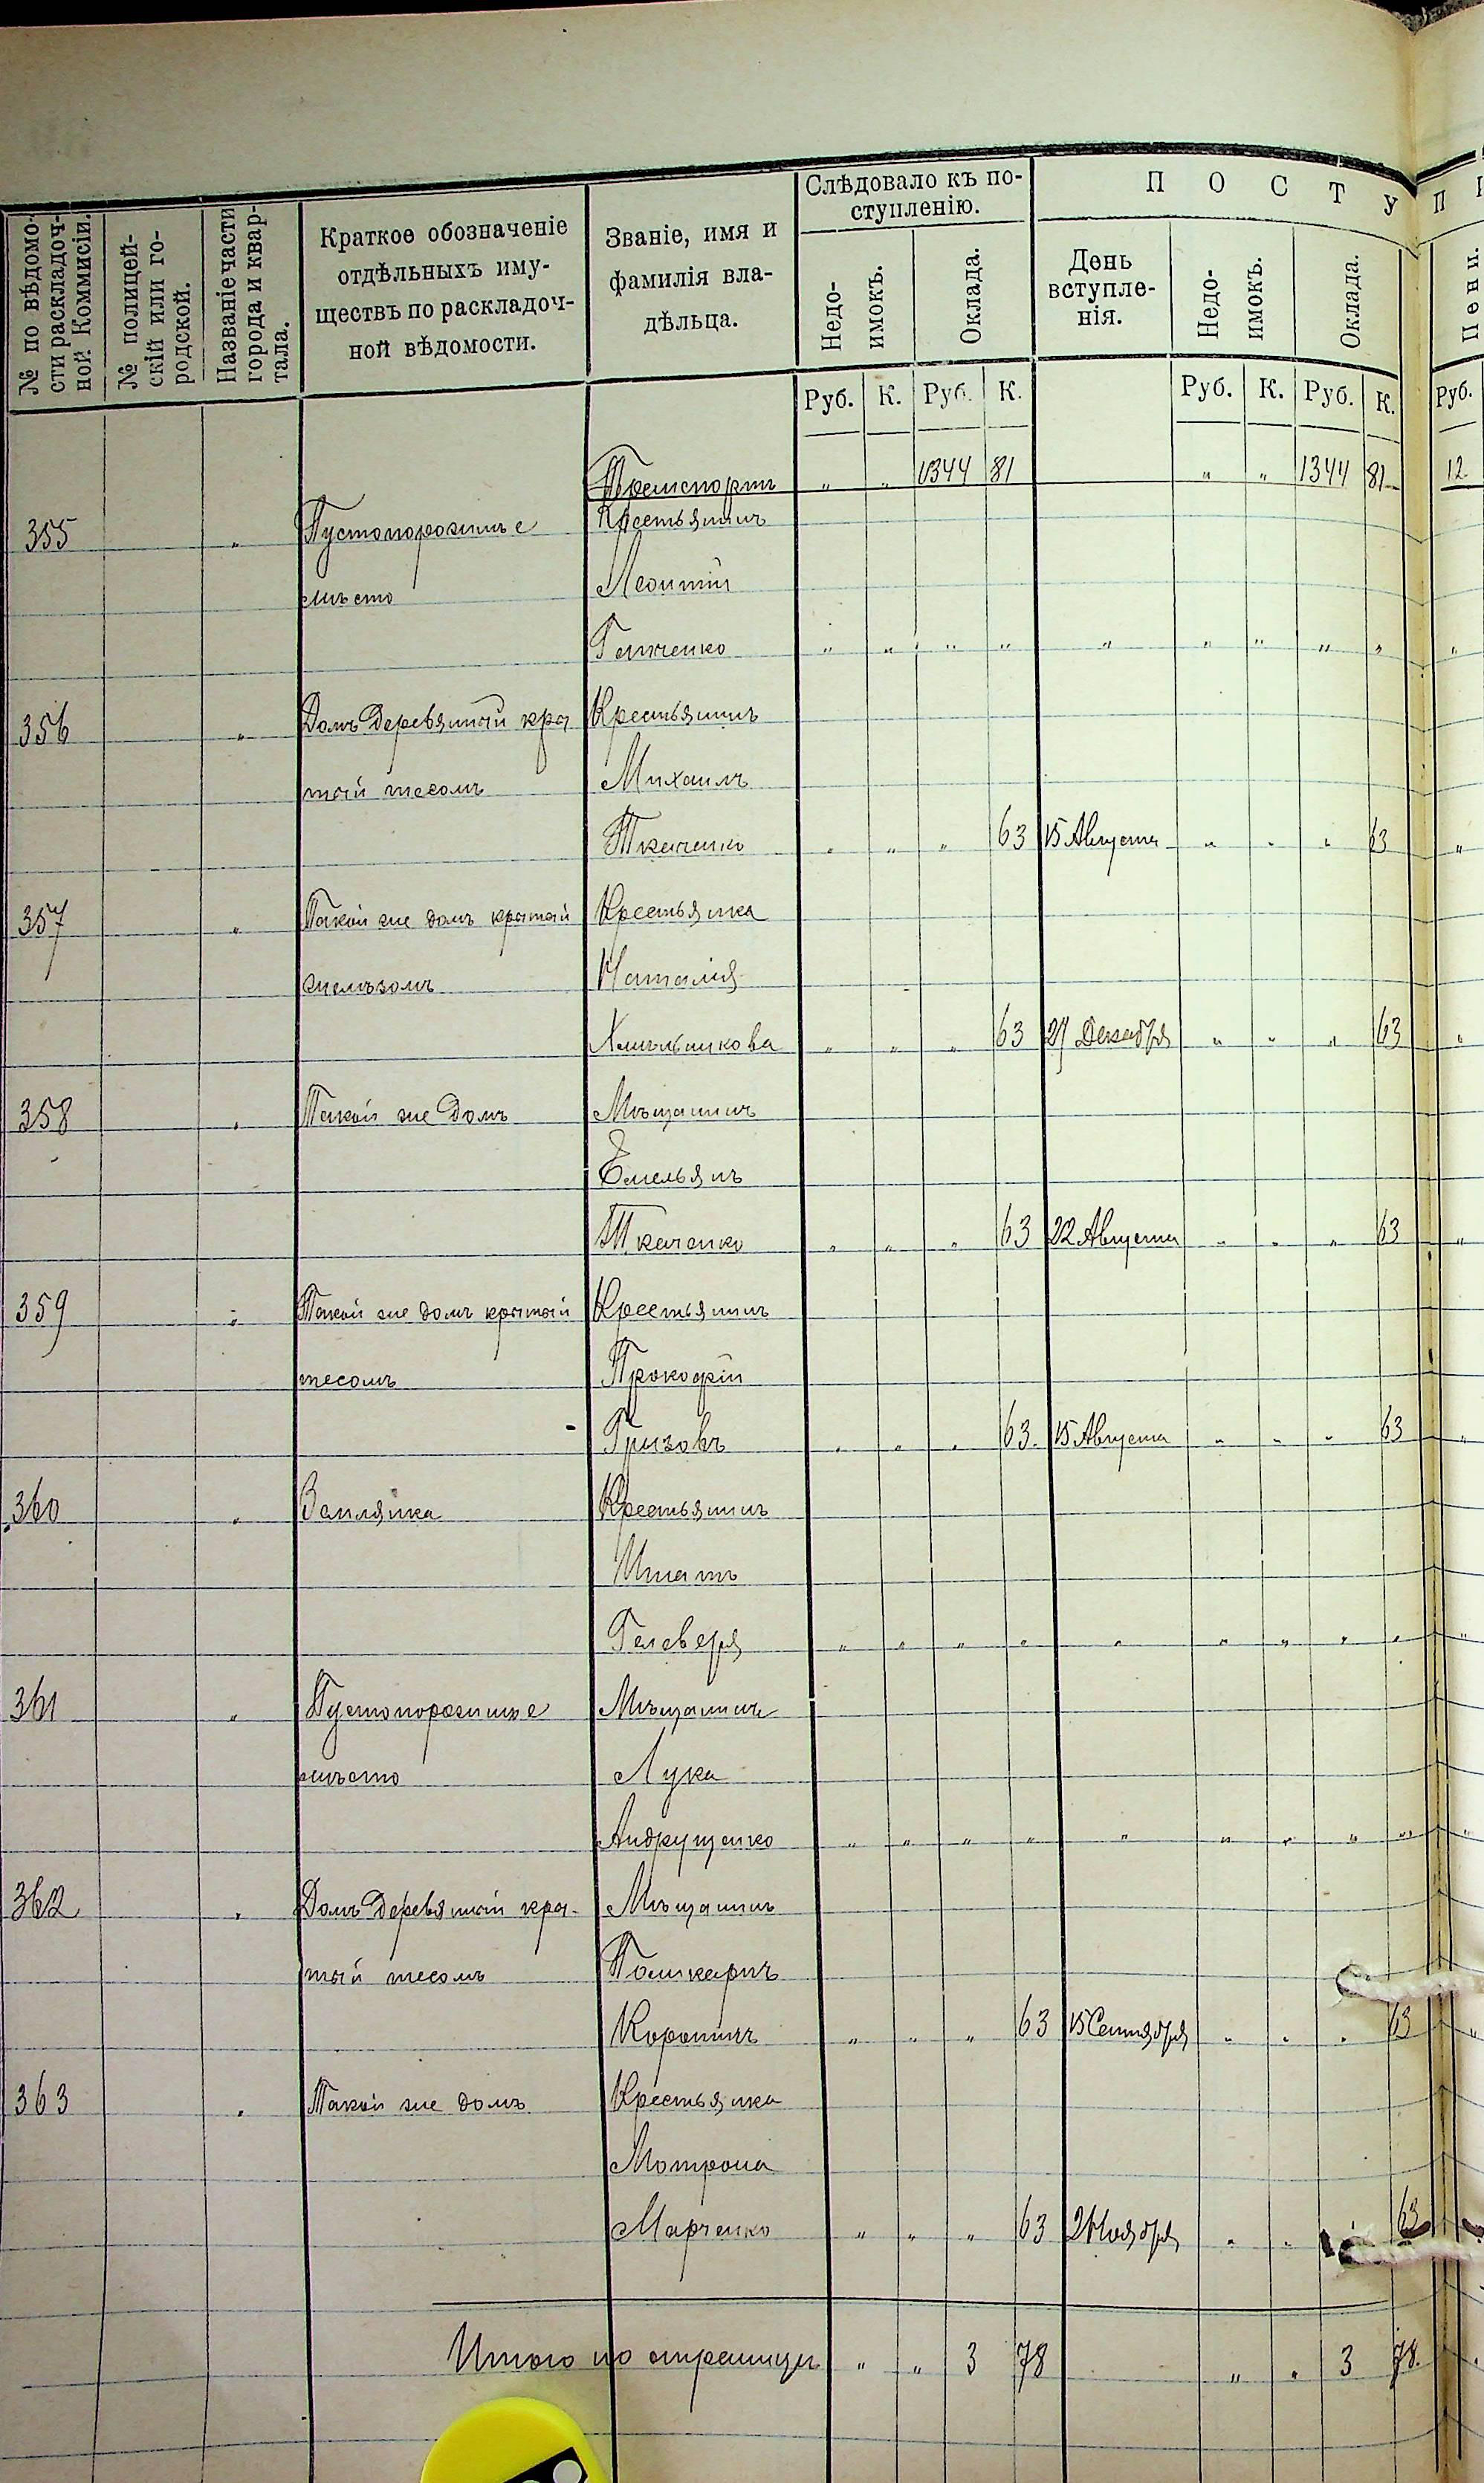 № по вѣдомости раскладочной Коммисіи.
№ полицейскій или городской.
Названіе части города и квартала.
Краткое обозначеніе отдѣльныхъ имуществъ по раскладочной вѣдомости.
Званіе, имя и фамилія владѣльца.
Слѣдовало къ поступленію.
П О С Т У П
Недоимокъ.
Оклада.
День вступленія.
Недоимокъ.
Оклада.
Пени.
Руб. К. Руб. К. Руб. К. Руб. К. Руб.
Транспортъ " " 1344 81 " " 1344 81 12
355 " Пустопорожнье Крестьянинъ
мѣсто Леонтій
" " " " " " " " " "
356 " Домъ деревяный кры Крестьянинъ
тый тесомъ Михаилъ
Ткаченко " " " 63 15 Августа " " " 63 "
357 " Такой же домъ крытый Крестьянка
желѣзомъ Наталія
Хмѣльникова " " " 63 27 Декабря " " " 63 "
358 " Такой же домъ Мѣщанинъ
Емельянъ
Ткаченко " " " 63 22 Августа " " " 63 "
359 " Такой же домъ крытый Крестьянинъ
тесомъ Прокофій
Гризовъ " " " 63 15 Августа " " " 63 "
360 " Землянка Крестьянинъ
Игнатъ
Гелеверя " " " " " " " " " "
361 " Пустопорожнье Мѣщанинъ
мѣсто Лука
Андрущенко " " " " " " " " " "
362 " Домъ деревяный кры- Мѣщанинъ
тый тесомъ Поликарпъ
" " " 63 15 Сентября " " " 63 "
363 " Такой же домъ Крестьянка
Мотрона
Марченко " " " 63 2 Ноября " " 63
Итого по страницѣ " " 3 78 " " 3 78